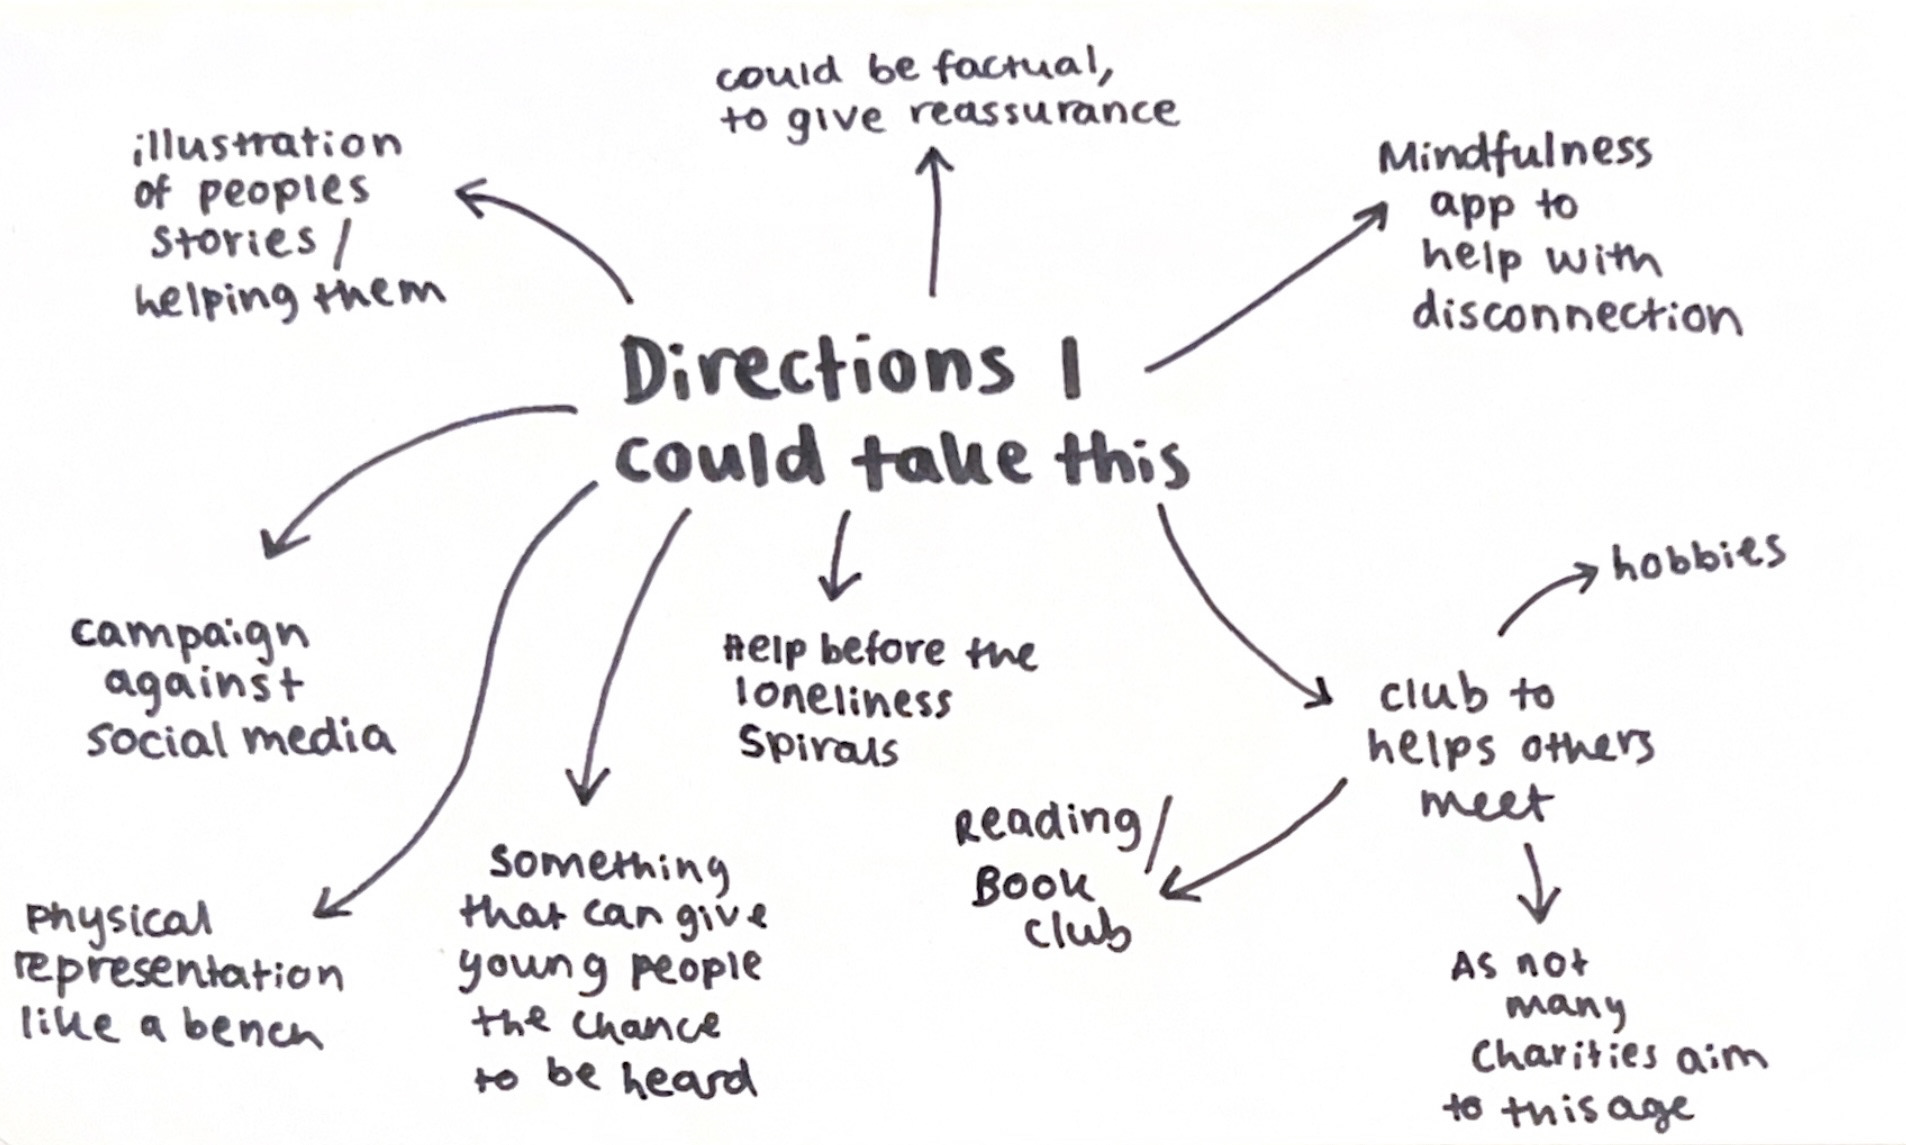 could be factual,
to give reassurance
illustration
of peoples
stories /
helping them
Mindfulness
app to
help with
disconnection
Directions I
could take this
campaign
against
social media
Help before the
loneliness
spirals
hobbies
club to
helps others
meet
Reading/
Book
club
As not
many
charities aim
to this age
something
that can give
young people
the chance
to be heard
Physical
representation
like a bench